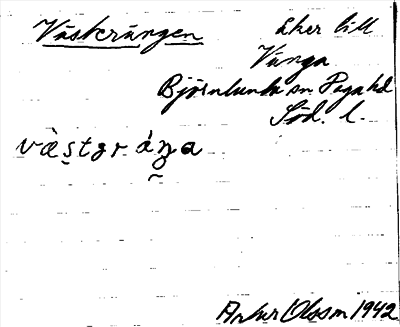 Västerängen
åker till
Vånga
Björnlunda sn Daga hd
Söd. l.
Artur Olsson 1942